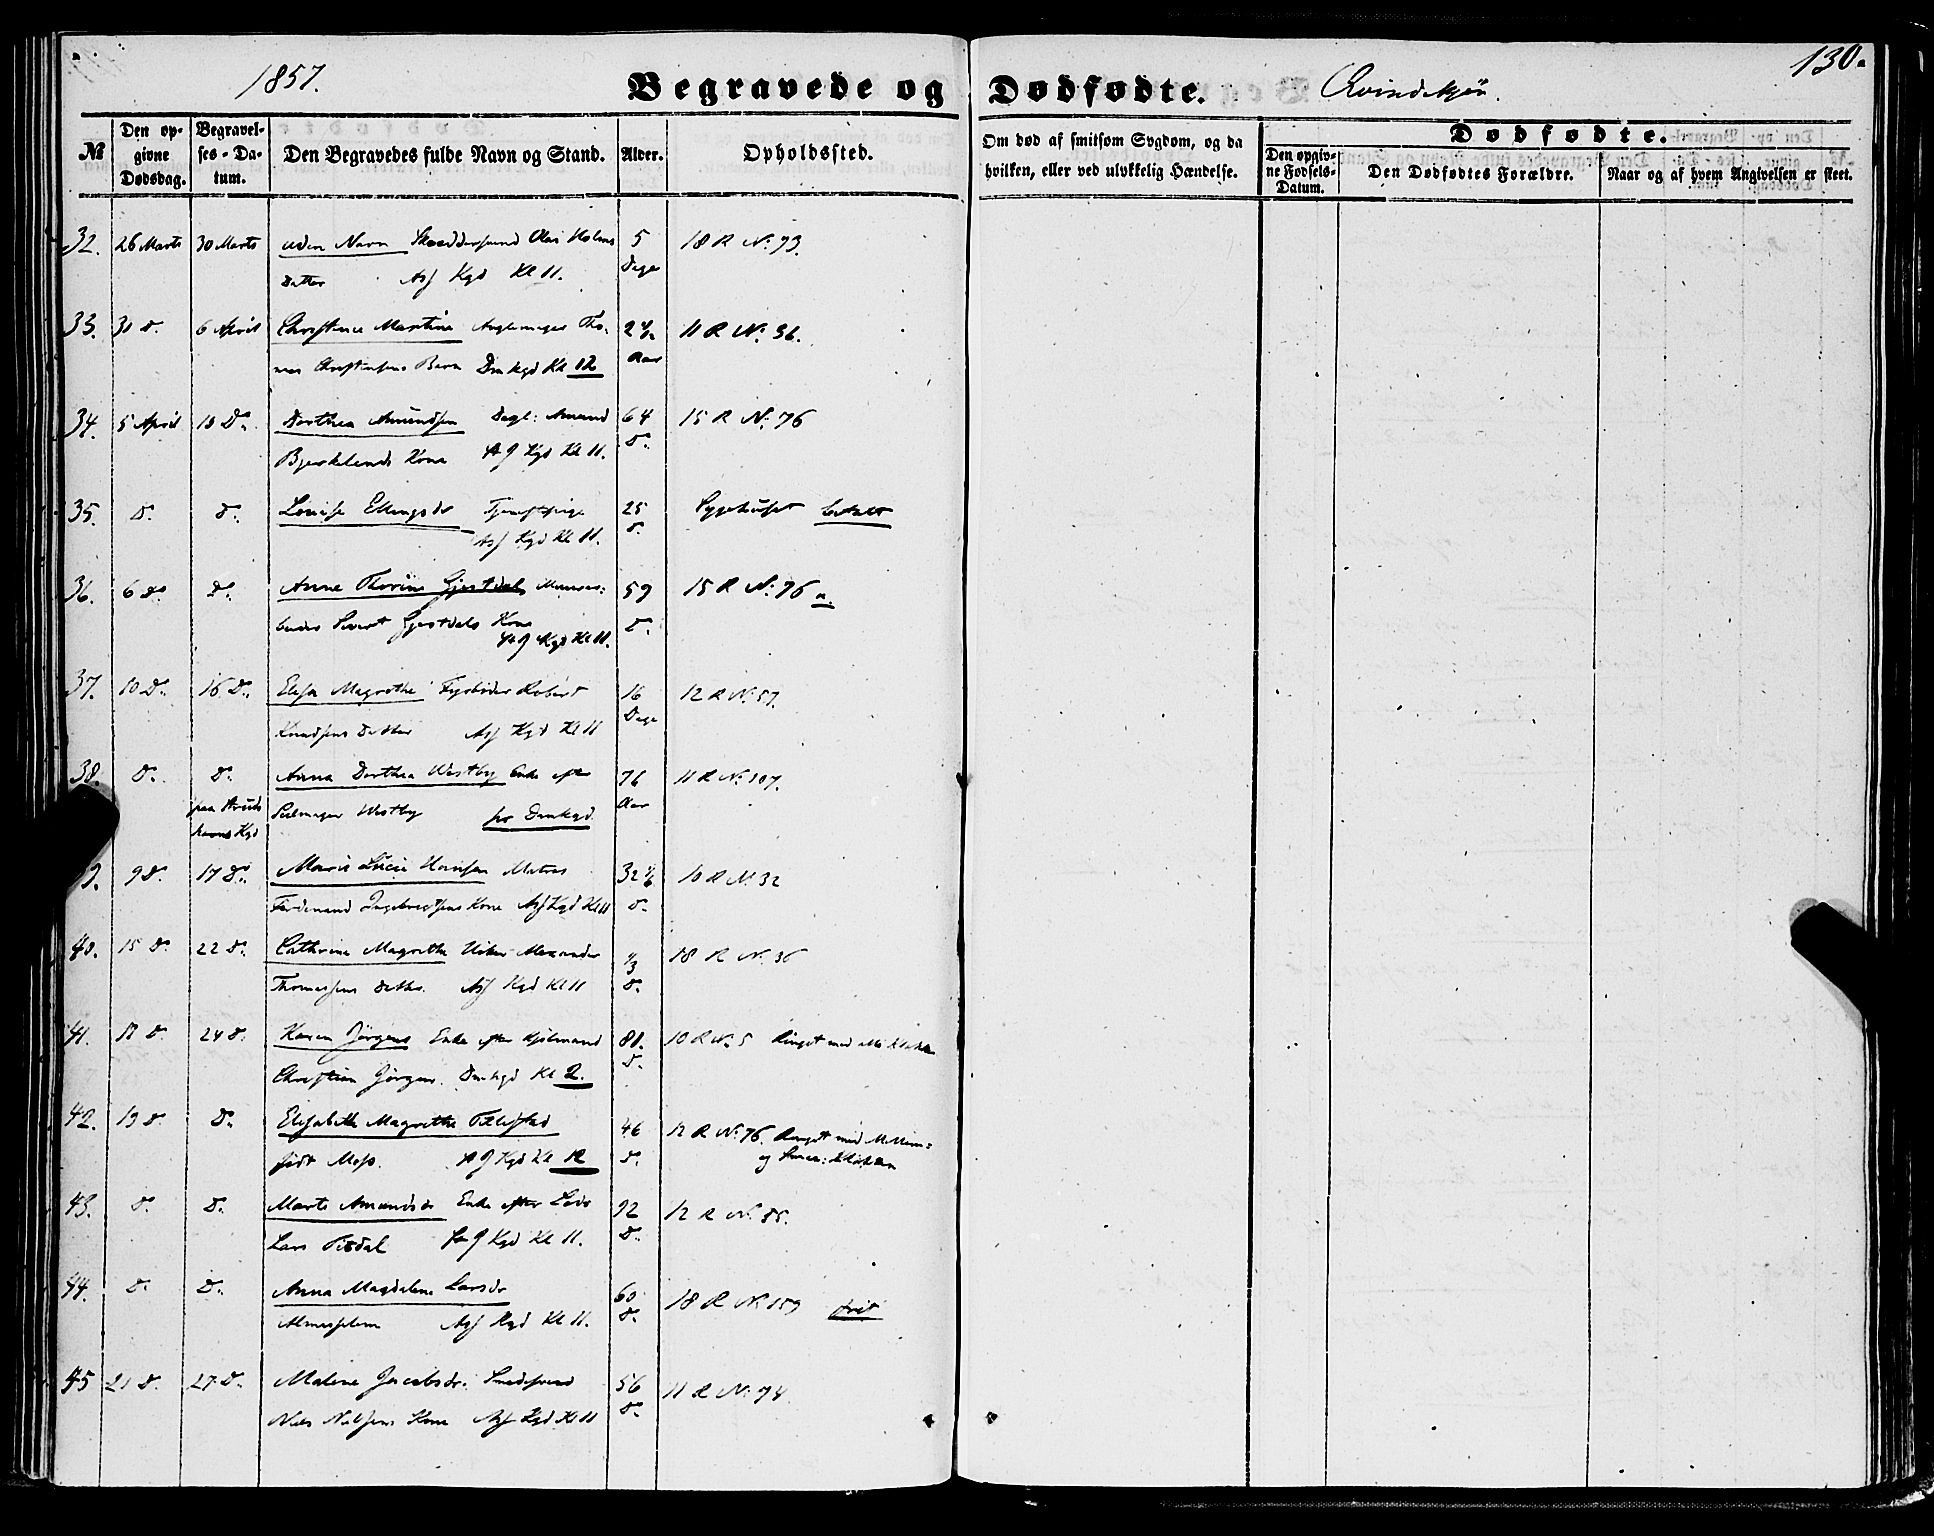 1857.
Begravede og Dødfødte.
Qvindekjøn.
130.
№
Den opgivne Dødsdag.
Begravelses-Datum.
Den Begravedes fulde Navn og Stand.
Alder.
Opholdssted.
Om død af smitsom Sygdom, og da hvilken, eller ved ulykkelig Hændelse.
Dødfødte.
Den opgivne Fødsels-Datum.
Den Dødfødtes Forældre.
Naar og af hvem Angivelsen er skeet.
32. 26 Marts 30 Marts uden Navn Olai Holms 5 18 R № 93.
Datter Asf Kgd Kl 11. Dage
33. 31 D. 6 April Christence Martine Tho- 2 11 R № 36.
mas Christensens Barn Domkgd Kl 12 Aar
34. 5 April 10 D. Dorthea Amundsen Dagl: Amund 64 15 R № 76
Bjerkelunds Kone St J Kgd Kl 11. D.
35. D. D. Louise Ellingsdr Tjenestpige 25 Sygehuset betalt
Asf Kgd Kl 11. D.
36. 6 D. D. Anne Thorine Gjestdal 59 15 R № 76 a.
Sivert Gjestdals Kone D.
St J Kgd Kl 11.
37. 10 D. 16 D. Elisa Magrethe Fyrbøder Robert 16 12 R № 57.
Knudsens Datter Asf Kgd Kl 11 Dage
38. D. D. Anna Dorthea Westby Enke efter 76 11 R № 107.
paa Kgd Seilmager Westby fra Domkgd. Aar
9. 9 D. 17 D. Marie Lucie Hansen Matros 32 10 R № 32
Ferdinand Ingebregtsens Kone Asf Kgd Kl 11 D.
40. 15 D. 22 D. Cathrine Magrethe Alexander 1/3 18 R № 36
Thomassens Datter. Asf Kgd Kl 11 D.
41. 17 D. 24 D. Karen Jørgens Enke efter 80. 10 R № 5 Ringet med alle Klokker
Christian Jørgens. Domkgd Kl 2. D.
42. 19 D. D. Elisabeth Magrethe 46 12 R № 76. Ringet med Mellem-
født Moss. St J Kgd Kl 12 D. og Smaa: Klokken
43. D. D. Marte Amundsdr Enke efter Lods 92 12 R № 85.
Lars St J Kgd Kl 11. D.
44. D. D. Anna Magdalene Larsdr 60 18 R № 159 frit
Almisselem Asf Kgd Kl 11. D.
45 21 D. 27 D. Malene Jacobsdr. Smedesvend 56 11 R № 94.
Niels Nielsens Kone Asf Kgd Kl 11 D.